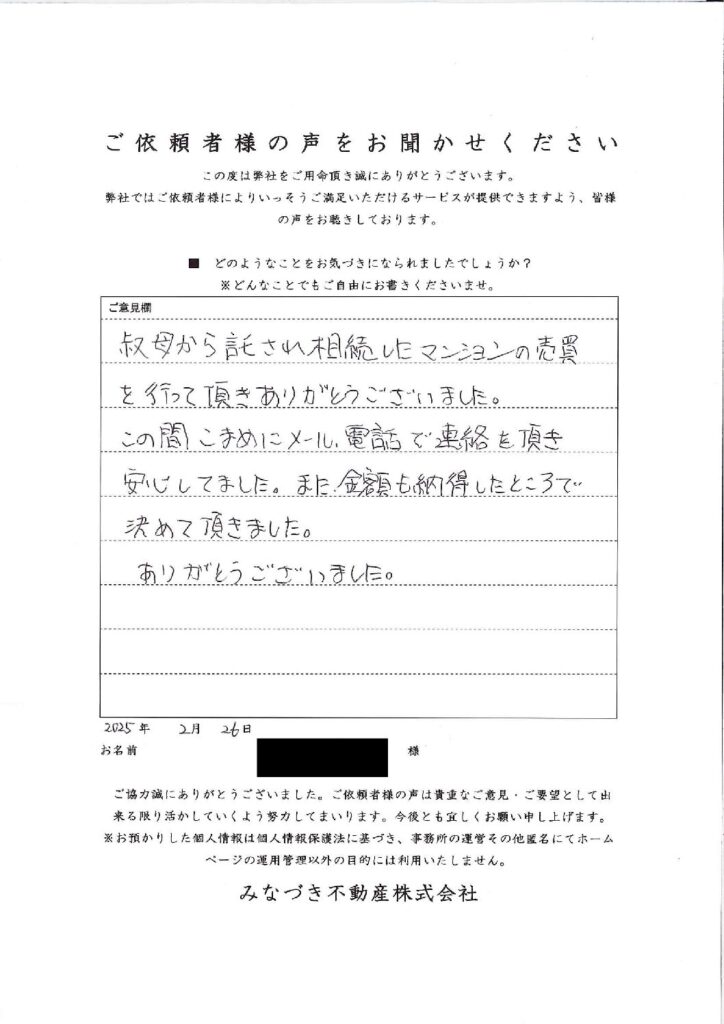 ご依頼者様の声をお聞かせください
この度は弊社をご用命頂き誠にありがとうございます。
弊社ではご依頼者様によりいっそうご満足いただけるサービスが提供できますよう、皆様
の声をお聴きしております。
■ どのようなことをお気づきになられましたでしょうか？
※どんなことでもご自由にお書きくださいませ。
ご意見欄
叔母から託され相続したマンションの売買
を行って頂きありがとうございました。
この間こまめにメール、電話で連絡を頂き
安心してました。また、金額も納得したところで
決めて頂きました。
ありがとうございました。
2025年 2月 26日
お名前 様
ご協力誠にありがとうございました。ご依頼者様の声は貴重なご意見・ご要望として出
来る限り活かしていくよう努力してまいります。今後とも宜しくお願い申し上げます。
※お預かりした個人情報は個人情報保護法に基づき、事務所の運営その他匿名にてホーム
ページの運用管理以外の目的には利用いたしません。
みなづき不動産株式会社